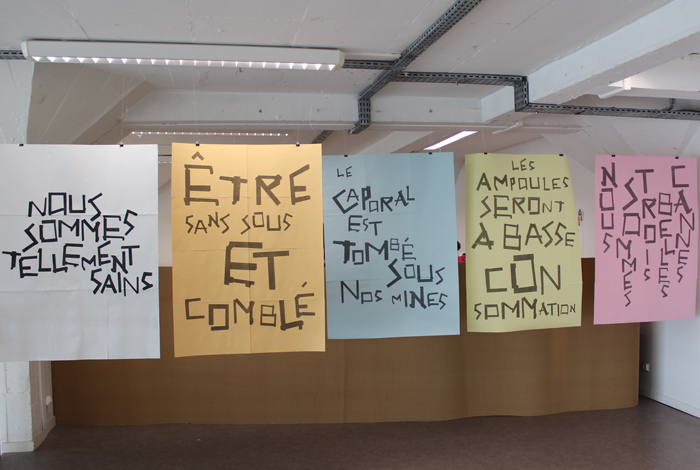 NOUS
SOMMES
TELLEMENT
SAINS
ÊTRE
SANS SOUS
ET
COMBLÉ
LE
CAPORAL
EST
TOMBÉ
SOUS
NOS MINES
LES
AMPOULES
SERONT
A BASSE
CON
SOMMATION
NOUS
SOMMES